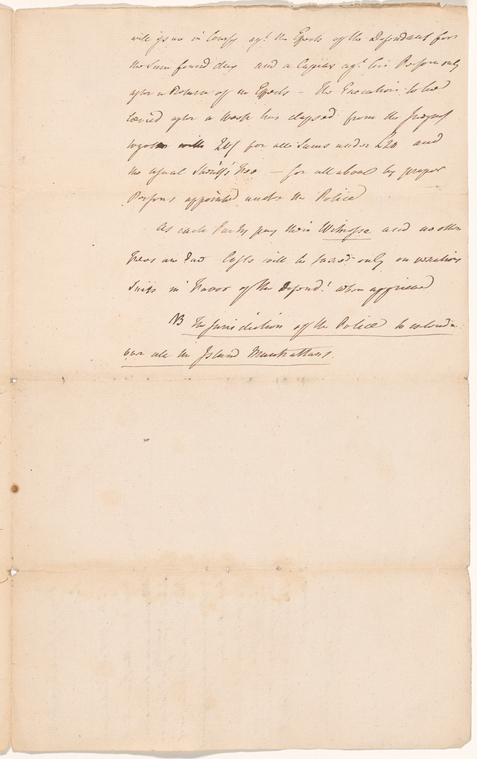 will issue in Course agt. the Effects of the Defendant for
the Sum found due and a Capias agt. his Person only
after a Return of no Effects – The Execution to be
levied after a Week has elapsed from the Judgmt
together with 24/ for all Sums under £20 and
the usual Sheriff's Fees – for all above by proper
Persons appointed under the Police
As each Party pays their Witnesses and no other
Fees are due Costs will be taxed only on vexatious
Suits in Favor of the Defendt. when aggrieved
NB The Jurisdiction of the Police to extend
over all the Island Manhattans